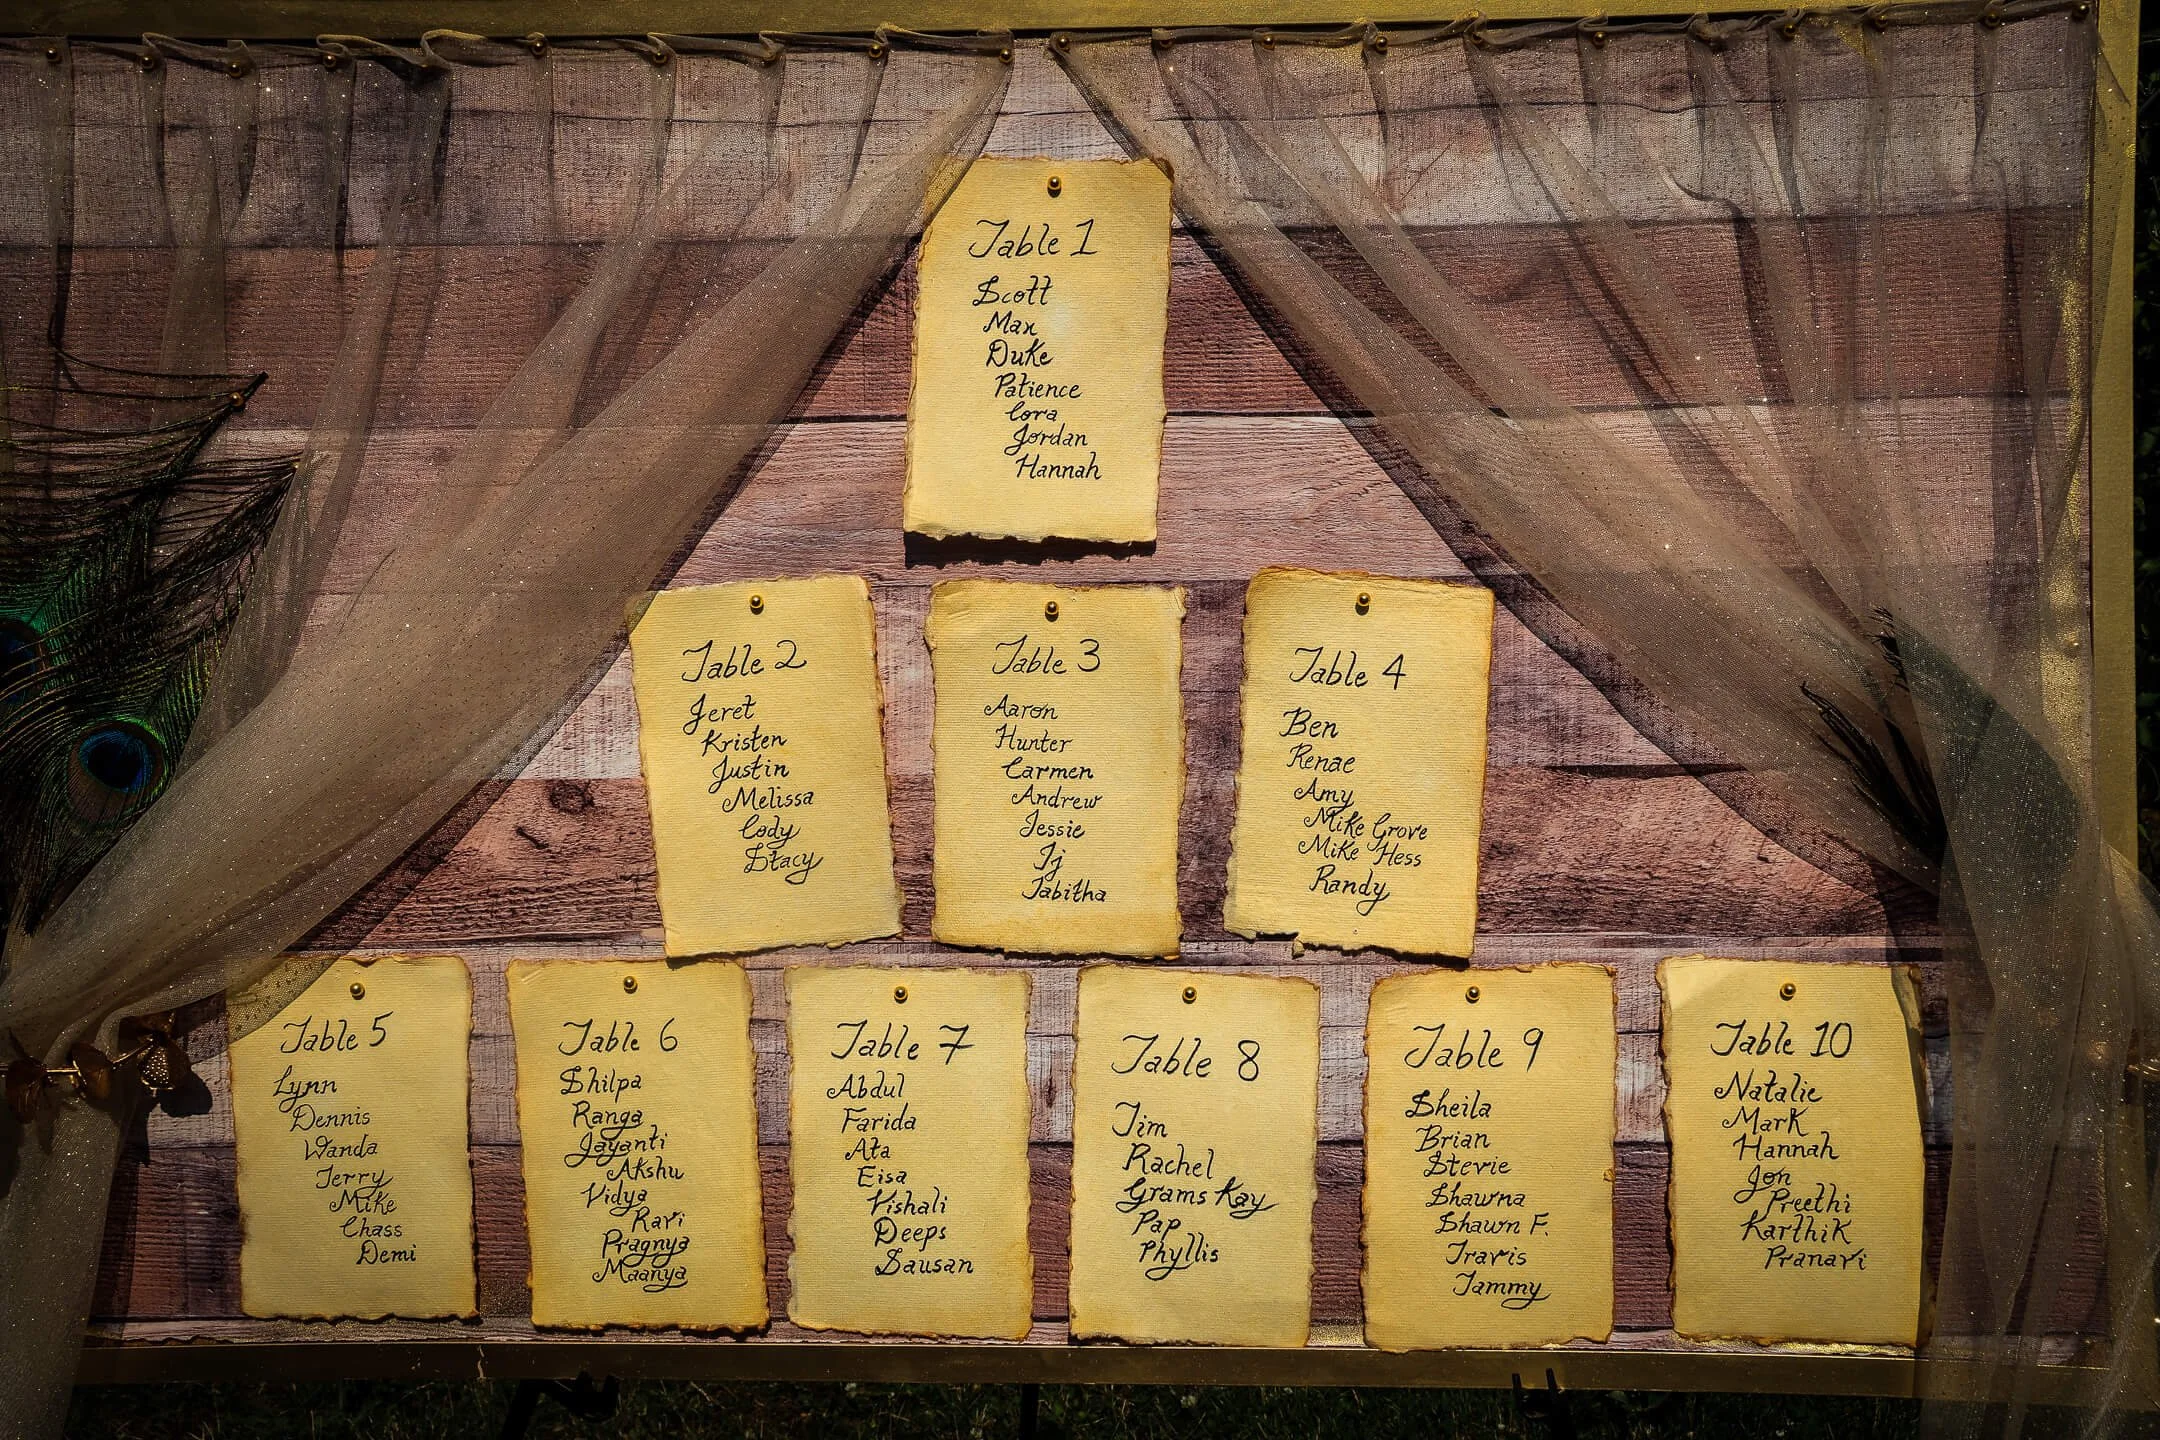 Table 1
Scott
Max
Duke
Patience
Cora
Jordan
Hannah
Table 2
Jeret
Kristen
Justin
Melissa
Cody
Stacy
Table 3
Aaron
Hunter
Carmen
Andrew
Jessie
Tj
Tabitha
Table 4
Ben
Renae
Amy
Mike Grove
Mike Hess
Randy
Table 5
Lynn
Dennis
Wanda
Terry
Mike
Chass
Demi
Table 6
Shilpa
Ranga
Jayanti
Akshu
Vidya
Ravi
Pragnya
Maanya
Table 7
Abdul
Farida
Ata
Eisa
Vishali
Deeps
Sausan
Table 8
Tim
Rachel
Grams Kay
Pap
Phyllis
Table 9
Sheila
Brian
Stevie
Shawna
Shawn F.
Travis
Tammy
Table 10
Natalie
Mark
Hannah
Jon
Preethi
Karthik
Pranavi